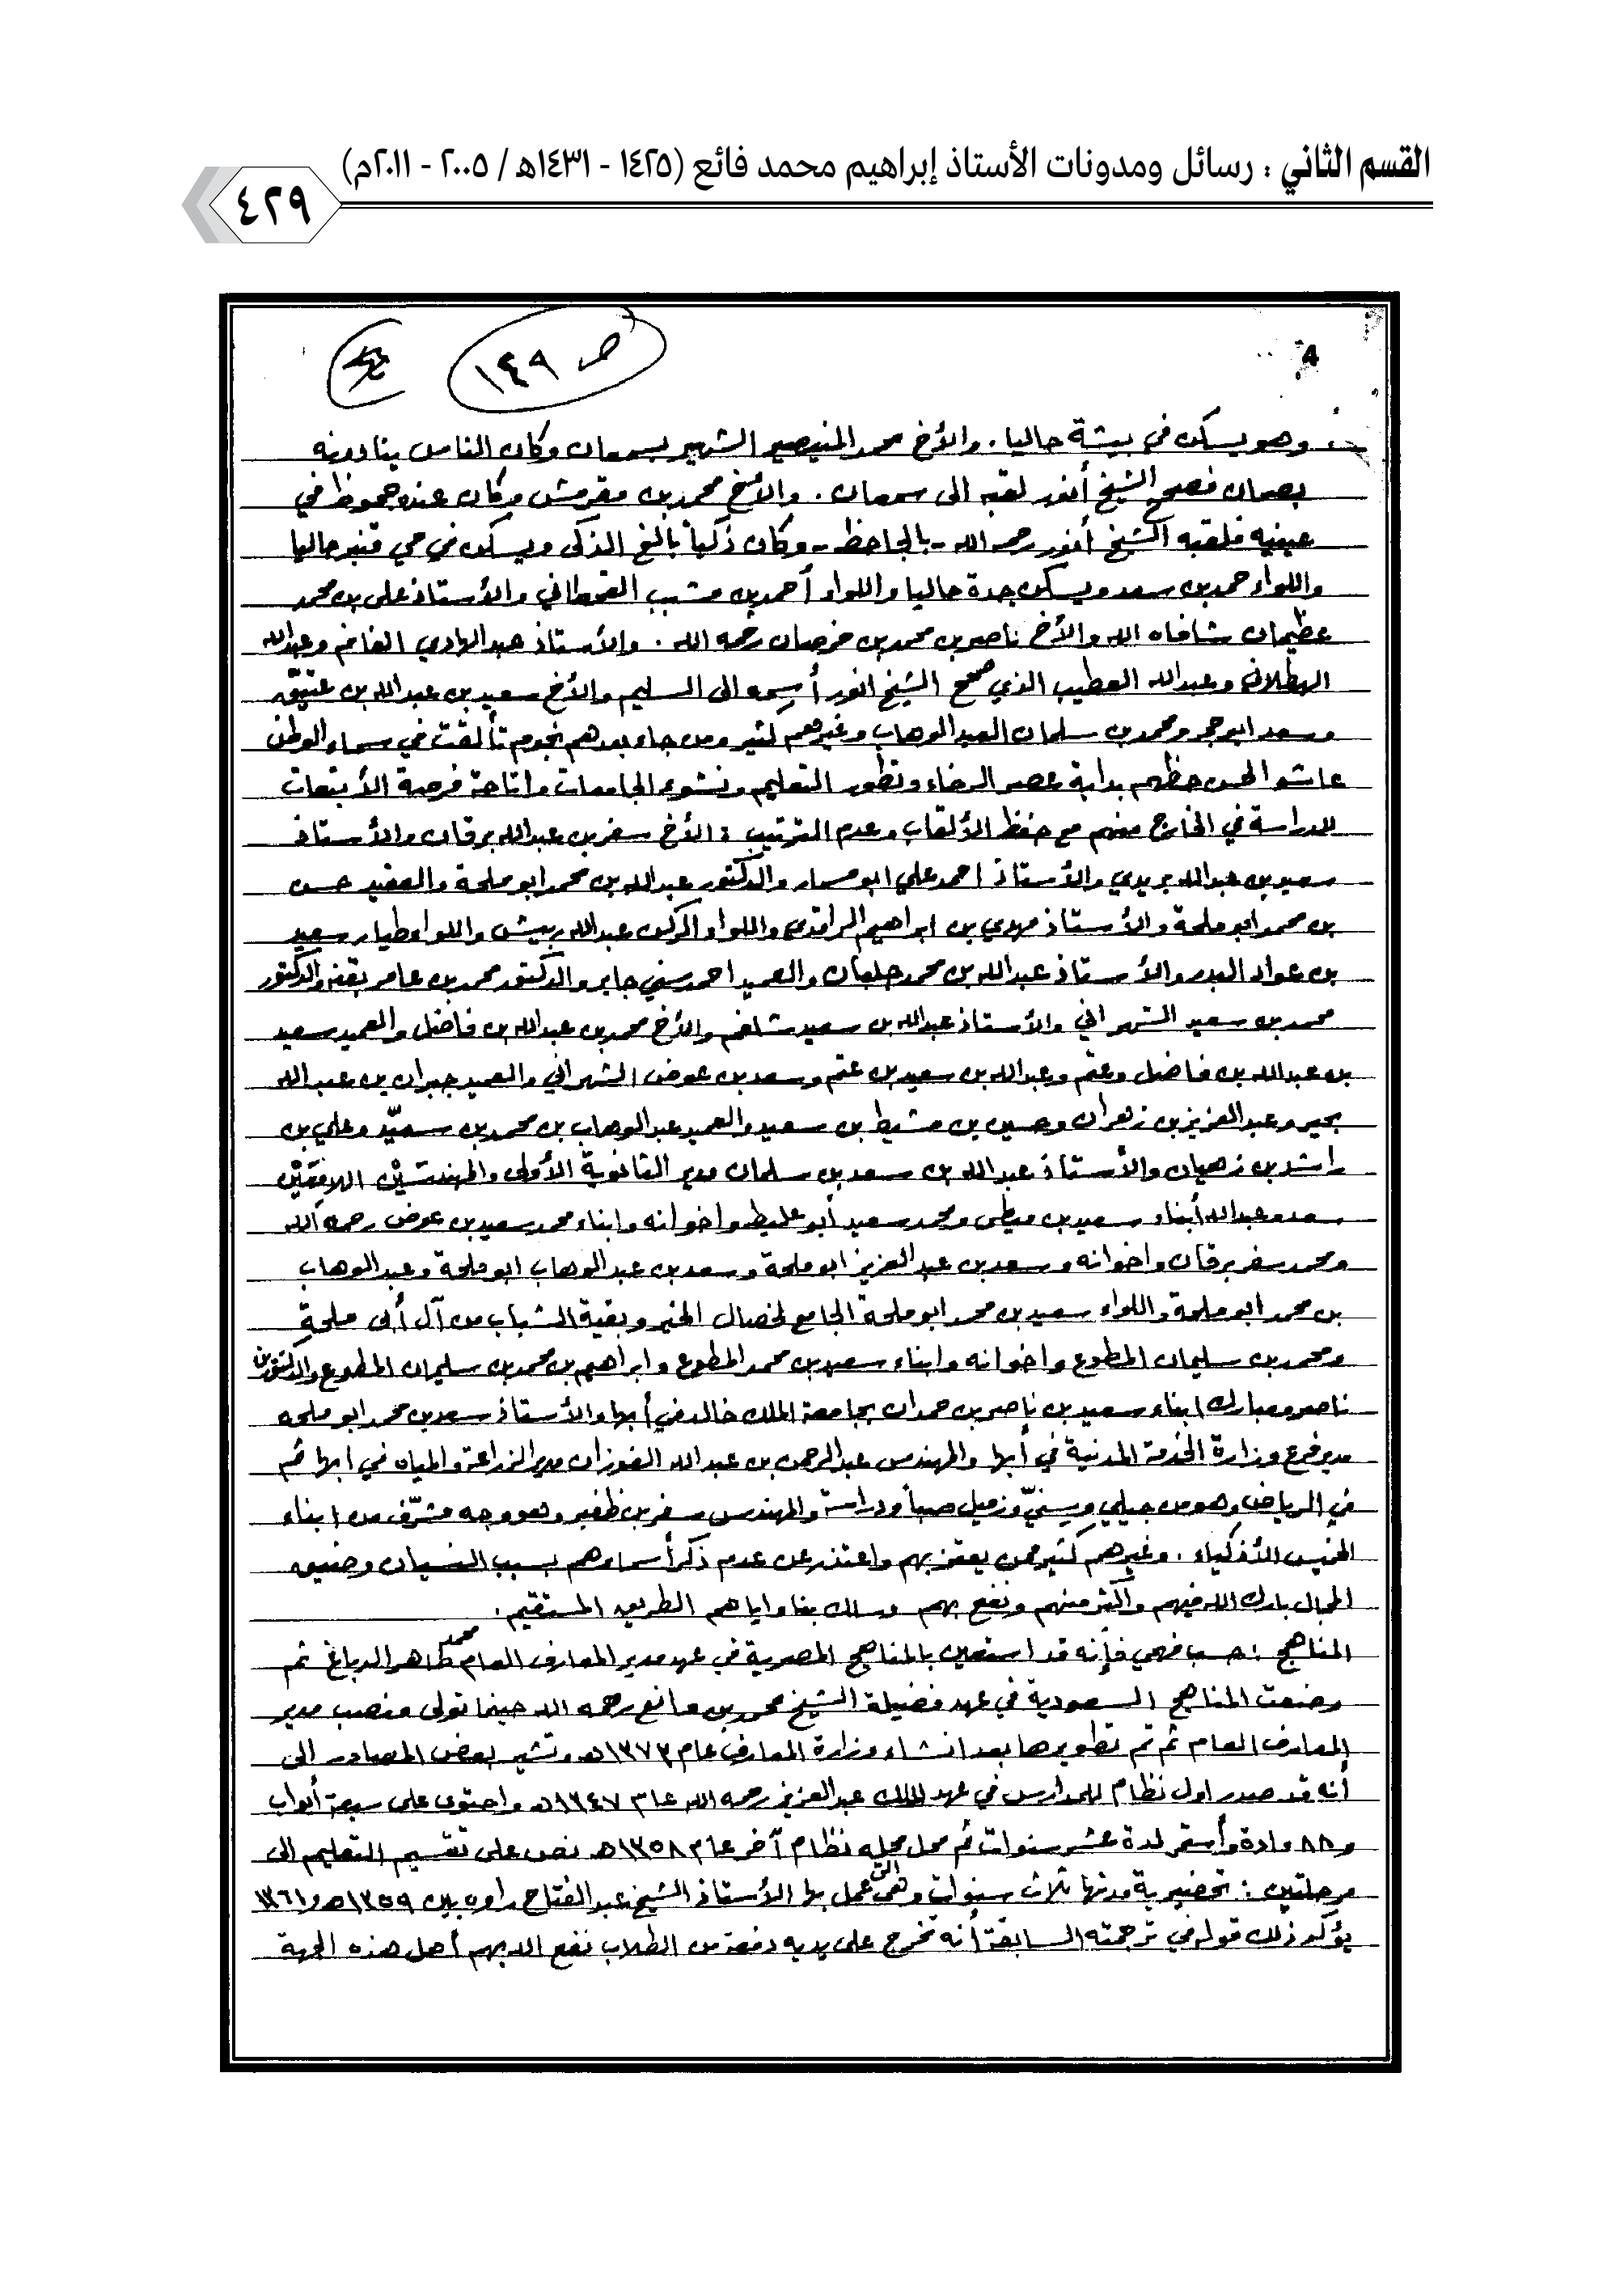 القسم الثاني : رسائل ومدونات الأستاذ إبراهيم محمد فائع (١٤٢٥ - ١٤٣١هـ / ٢٠٠٥ - ٢٠١١م)
٤٢٩
4
ص ١٤٩
وهو يسكن في بيشة حاليا . والأخ محمد المنيصير الشهير بسمعان وكان الناس ينادونه
بصمان فصحح الشيخ أنور لقبه الى سمعان . والأخ محمد بن مقرمش وكان عنده جحوظ في
عينيه فلقبه الشيخ أنور رحمه الله - بالجاحظ - وكان ذكياً بالغ الذكى ويسكن في حي قنبر حاليا
واللواء حمد بن سعد ويسكن جدة حاليا واللواء أحمد بن مشبب القحطاني والأستاذ علي بن محمد
عظيمان شافاه الله والأخ ناصر بن محمد بن خرصان رحمه الله . والأستاذ عبدالهادي الغانم وعبدالله
الهطلان وعبدالله العطيب الذي صحح الشيخ انور أسمه الى السليم والأخ سعيد بن عبدالله بن عتيق
وسعد ابو حجر ومحمد بن سلمان العبدالوهاب وغيرهم كثير ومن جاء بعدهم نجوم تألقت في سماء الوطن
عاشو الحسن حظهم بداية عصر الرخاء وتطور التعليم ونشوء الجامعات واتاحة فرصة الأبتعاث
للدراسة في الخارج منهم مع حفظ الألقاب وعدم الترتيب : الأخ سفر بن عبدالله برقان والأستاذ
سعيد بن عبدالله بريدي والأستاذ احمد علي ابو مسمار والدكتور عبدالله بن محمد ابو ملحة والعقيد حسن
بن محمد ابو ملحة والأستاذ مهدي بن ابراهيم الراقدي واللواء الركن عبدالله بهيش واللواء طيار سعيد
بن عواد البدر والأستاذ عبدالله بن محمد جلبان والعميد احمد سني جابر والدكتور محمد بن عامر بقنه والدكتور
محمد بن سعيد الشهراني والأستاذ عبدالله بن سعيد شلغم والأخ محمد بن عبدالله بن فاضل والعميد سعيد
بن عبدالله بن فاضل وعتم وعبدالله بن سعيد بن عتم وسعد بن عوض الشهراني والعميد جبران بن عبدالله
بحير وعبدالعزيز بن زهران وحسين بن مشيط بن سعيد والعميد عبدالوهاب بن محمد بن سعيّد وعلي بن
راشد بن زهيان والأستاذ عبدالله بن سعد بن سلمان مدير الثانوية الأولى والمهندسيْن اللامعَيْن
سعد وعبدالله أبناء سعيد بن ومحمد سعيد أبو عليط واخوانه وابناء محمد سعيد بن عوض رحمه الله
ومحمد سفر برقان واخوانه وسعد بن عبدالعزيز ابو ملحة وسعد بن عبدالوهاب ابو ملحة وعبدالوهاب
بن محمد ابو ملحة واللواء سعيد بن محمد ابو ملحة الجامع لخصال الخير وبقية الشباب من آل أبى ملحة
ومحمد بن سليمان المطوع واخوانه وابناء سعيد بن محمد المطوع وابراهيم بن محمد بن سليمان المطوع والدكتورين
ناصر ومبارك ابناء سعيد بن ناصر بن حمدان بجامعة الملك خالد في أبها والأستاذ سعد بن محمد ابو ملحه
مدير فرع وزارة الخدمة المدنية في أبها والمهندس عبدالرحمن بن عبدالله الفوزان مدير الزراعة والمياه في ابها ثم
في الرياض وهو من جيلي وسنيّ وزميل صبا ودراسة والمهندس سفر بن ظفير وهو وجه مشرّف من ابناء
الخميس الأذكياء . وغيرهم كثير ممن يعتز بهم واعتذر عن عدم ذكر أسماءهم بسبب النسيان وضيق
المجال بارك الله فيهم وأكثر منهم ونفع بهم وسلك بنا واياهم الطريق المستقيم .
المناهج : حسب فهمي فأنه قد استعين بالمناهج المصرية في عهد مدير المعارف العام محمد طاهر الدباغ ثم
وضعت المناهج السعودية في عهد فضيلة الشيخ محمد بن مانع رحمه الله حينما تولى منصب مدير
المعارف العام ثم تم تطويرها بعد انشاء وزارة المعارف عام ١٣٧٣هـ وتشير بعض المصادر الى
أنه قد صدر اول نظام للمدارس في عهد الملك عبدالعزيز رحمه الله عام ١٣٤٧هـ واحتوى على سبعة أبواب
و ٨٨ مادة وأستمر لمدة عشر سنوات ثم حل محله نظام آخر عام ١٣٥٨هـ نص على تقسيم التعليم الى
مرحلتين : تحضيرية مدتها ثلاث سنوات وهى التى عمل بها الأستاذ الشيخ عبدالفتاح راوه بين ١٣٥٩هـ و ١٣٦١
يؤكد ذلك قوله في ترجمته السابقة أنه تخرج على يديه دفعة من الطلاب نفع الله بهم أهل هذه الجهة